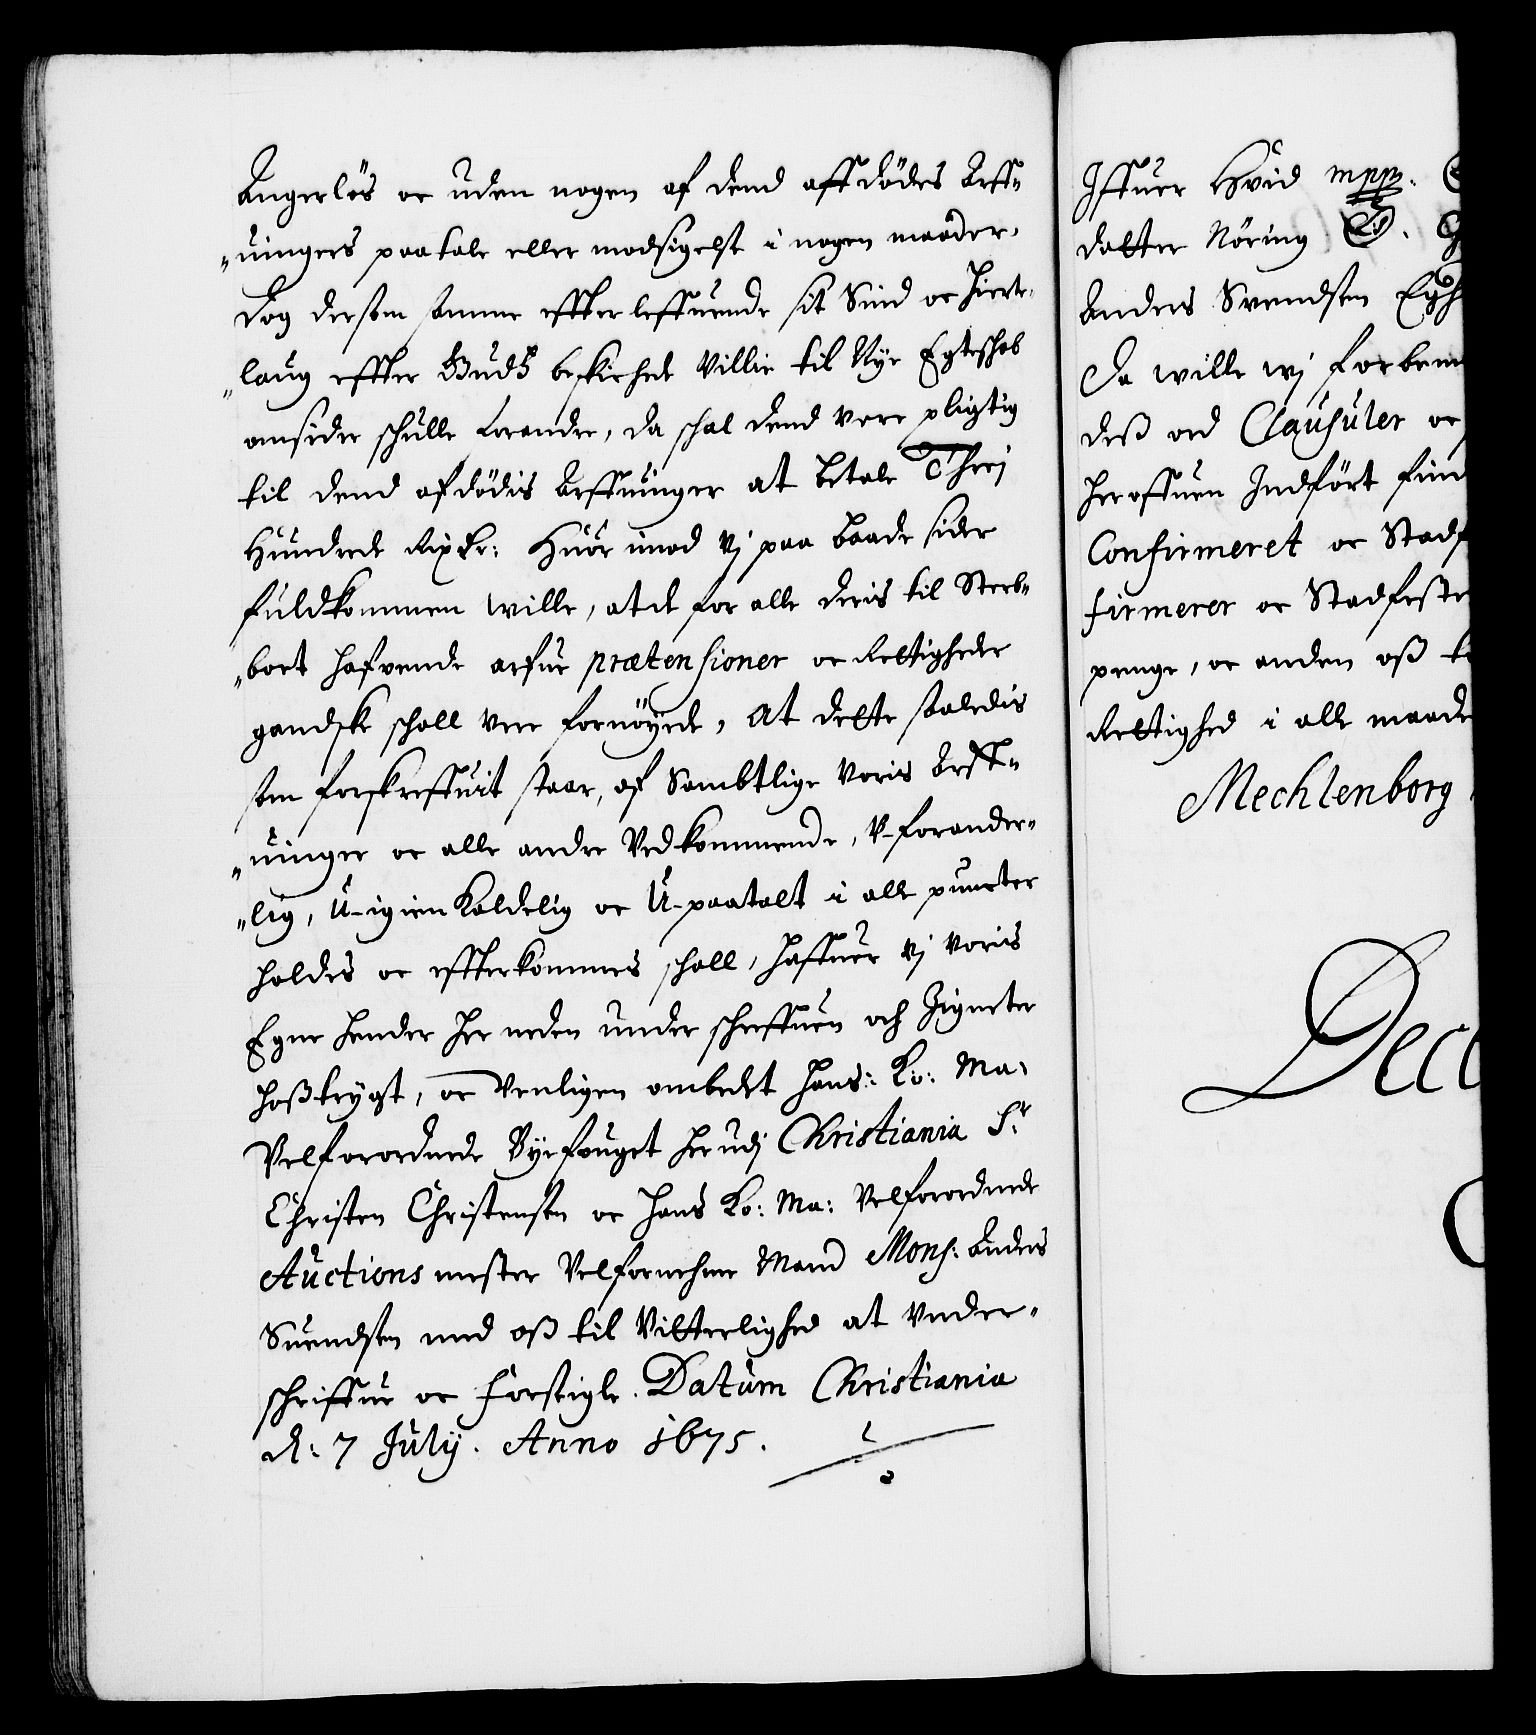 Angerløs oc uden nogen af dend affdødes Arff„
„uingers paatale eller modsigelse i nogen maader.
Dog dersom samme effterleffuende sit Sind oc hierte„
„laug effter Gudß beskichede Villie til Nye Egteschab
omsider schulle forandre, da schal dend vere pligtig
til dend afdødis Arffuinger at betale Threj
Hundrede Rixdr: Huor imod Vj paa baade sider
fuldkommen wille, at de for alle deris til Sterb„
„boet hafvende arfue prætensioner oc Rettigheder
gandske schall vere fornøyede, At dette saaledis
som forskreffuit staar, af Sambtlige Voris Arff„
„uinger oc alle andre Vedkommende, V-forander„
„lig, U-igienkaldelig oc U-paatalt i alle puncter
holdes oc effterkommes schall, haffuer Vj Voris
Egne hender her neden under schreffuen och Zigneter
hoßtrygt, oc Venligen ombedet hans: Ko: Ma:
Velforordnede Byefouget her udj Christiania Sr.
Christen Christensen oc Hans Ko: Ma: Velforordnede
Auctions mester Velfornehme Mand Mons: Anders
Suendsen med oß til Vitterlighed at Vnder„
schriffue oc forseigle. Datum Christiania
d: 7 July. Anno 1675.
Iffuer Hvid mppr.
datter Nøring LS.
Anders Svendsen
Da wille wj forbem
deß ord Clausuler oc
heroffuen Indført fin
Confirmeret oc Stadf
firmerer oc Stadfeste
penge, oc anden oß
Rettighed i alle maade
Mechlenborg
Dece